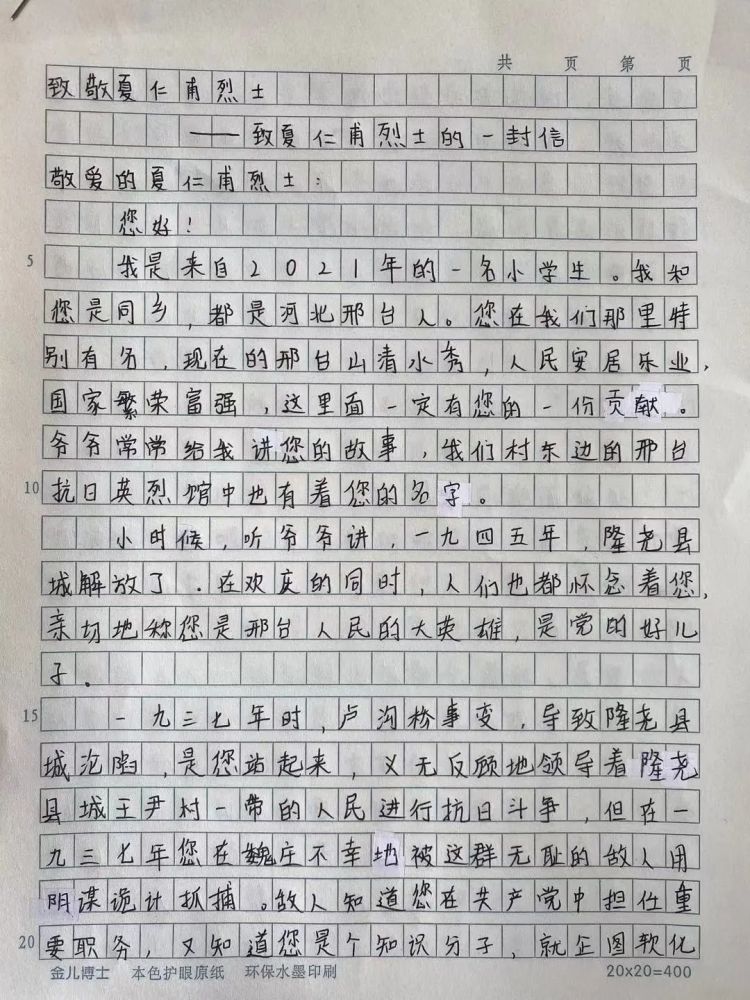 共 页 第 页
致敬夏仁甫烈士
——致夏仁甫烈士的一封信
敬爱的夏仁甫烈士：
您好！
5 我是来自2021年的一名小学生。我和
您是同乡，都是河北邢台人。您在我们那里特
别有名，现在的邢台山清水秀，人民安居乐业，
国家繁荣富强，这里面一定有您的一份贡献。
爷爷常常给我讲您的故事，我们村东边的邢台
10 抗日英烈馆中也有着您的名字。
小时候，听爷爷讲，一九四五年，隆尧县
城解放了．在欢庆的同时，人们也都怀念着您，
亲切地称您是邢台人民的大英雄，是党的好儿
子．
15 一九三七年时，卢沟桥事变，导致隆尧县
城沦陷，是您站起来，义无反顾地领导着隆尧
县城王尹村一带的人民进行抗日斗争，但在一
九三七年您在魏庄不幸地被这群无耻的敌人用
阴谋诡计抓捕。敌人知道您在共产党中担任重
20 要职务，又知道您是个知识分子，就企图软化
金儿博士 本色护眼原纸 环保水墨印刷 20x20=400